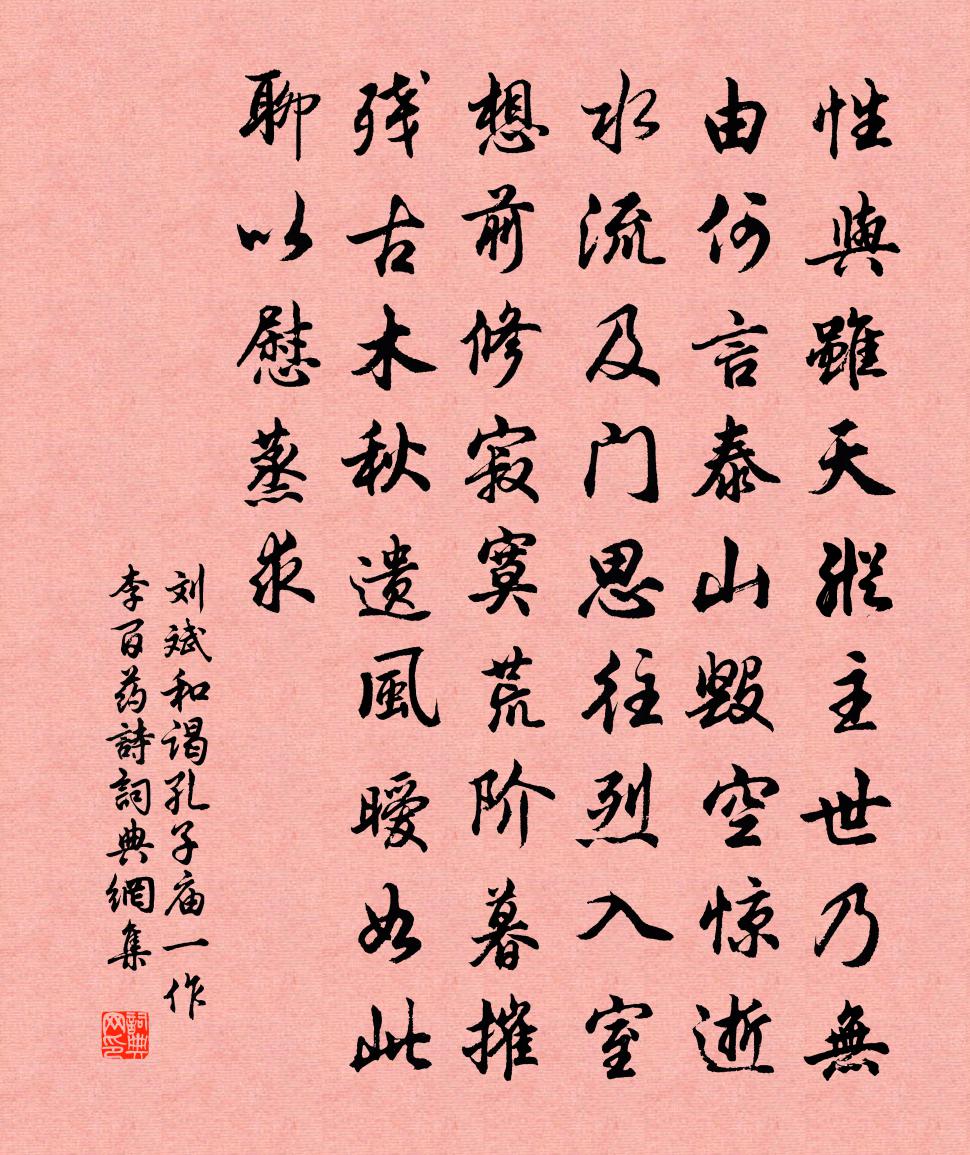 性與雖天縱主世乃無
由何言泰山毀空惊逝
水流及门思往烈入室
想前修寂寞荒阶暮摧
残古木秋遗風曖如此
聊以慰蒸求
刘斌和谒孔子庙一作
李百药詩詞典網集
詞典网印